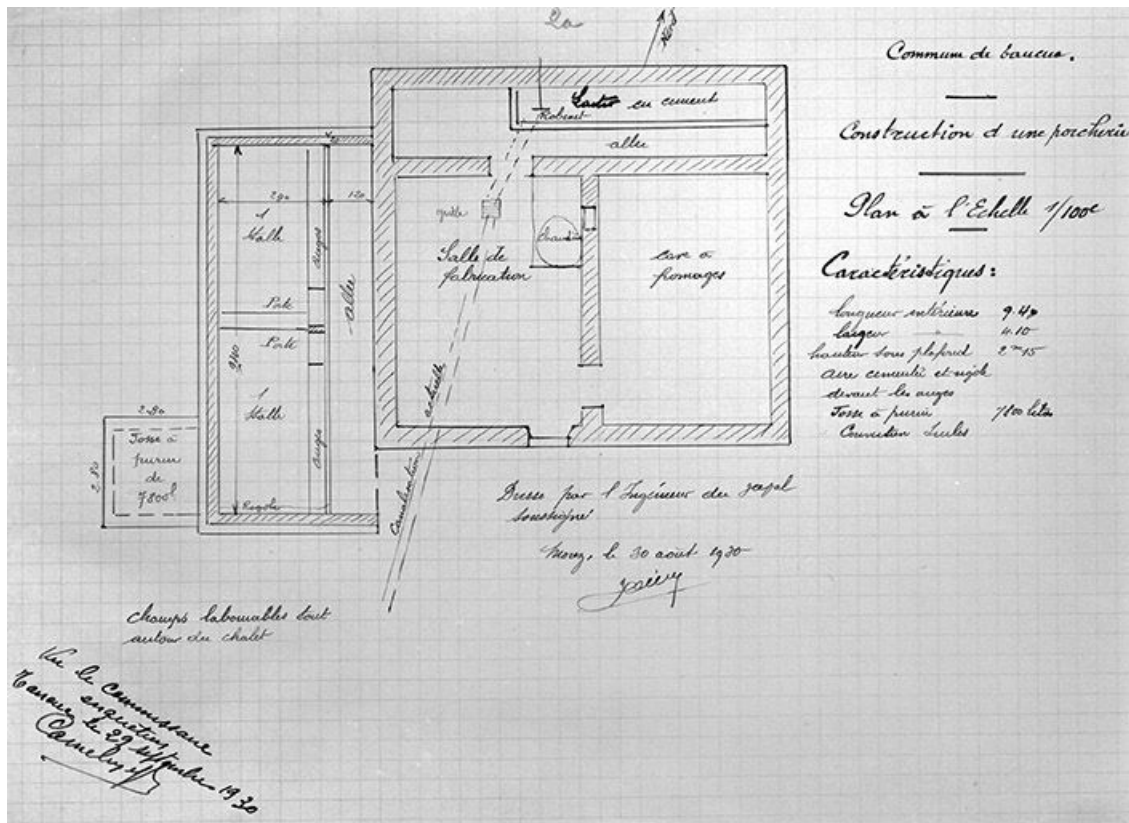 2a
Nord
Commune de
Construction d'une porcherie
Plan à l'Echelle 1/100e
Caractéristiques :
longueur intérieure 9.40
largeur — 4.10
hauteur sous plafond 2m15
aire cimentée et rigole
devant les auges
Fosse à purin 7800 litres
Couverture Tuiles
en ciment
Robinet
allée
grille
Chaudière
Salle de
fabrication
cave à
fromages
2.90
120
1
Stalle
auges
allée
Porte
Porte
9.40
1
Stalle
auges
Rigole
2.80
2.80
Fosse à
purin
de
7800l
Canalisation actuelle
Dressé par l'Ingénieur du
soussigné
Morez, le 30 août 1930
champs labourables tout
autour du chalet
Vu le Commissaire
enquêteur
le 29 septembre 1930